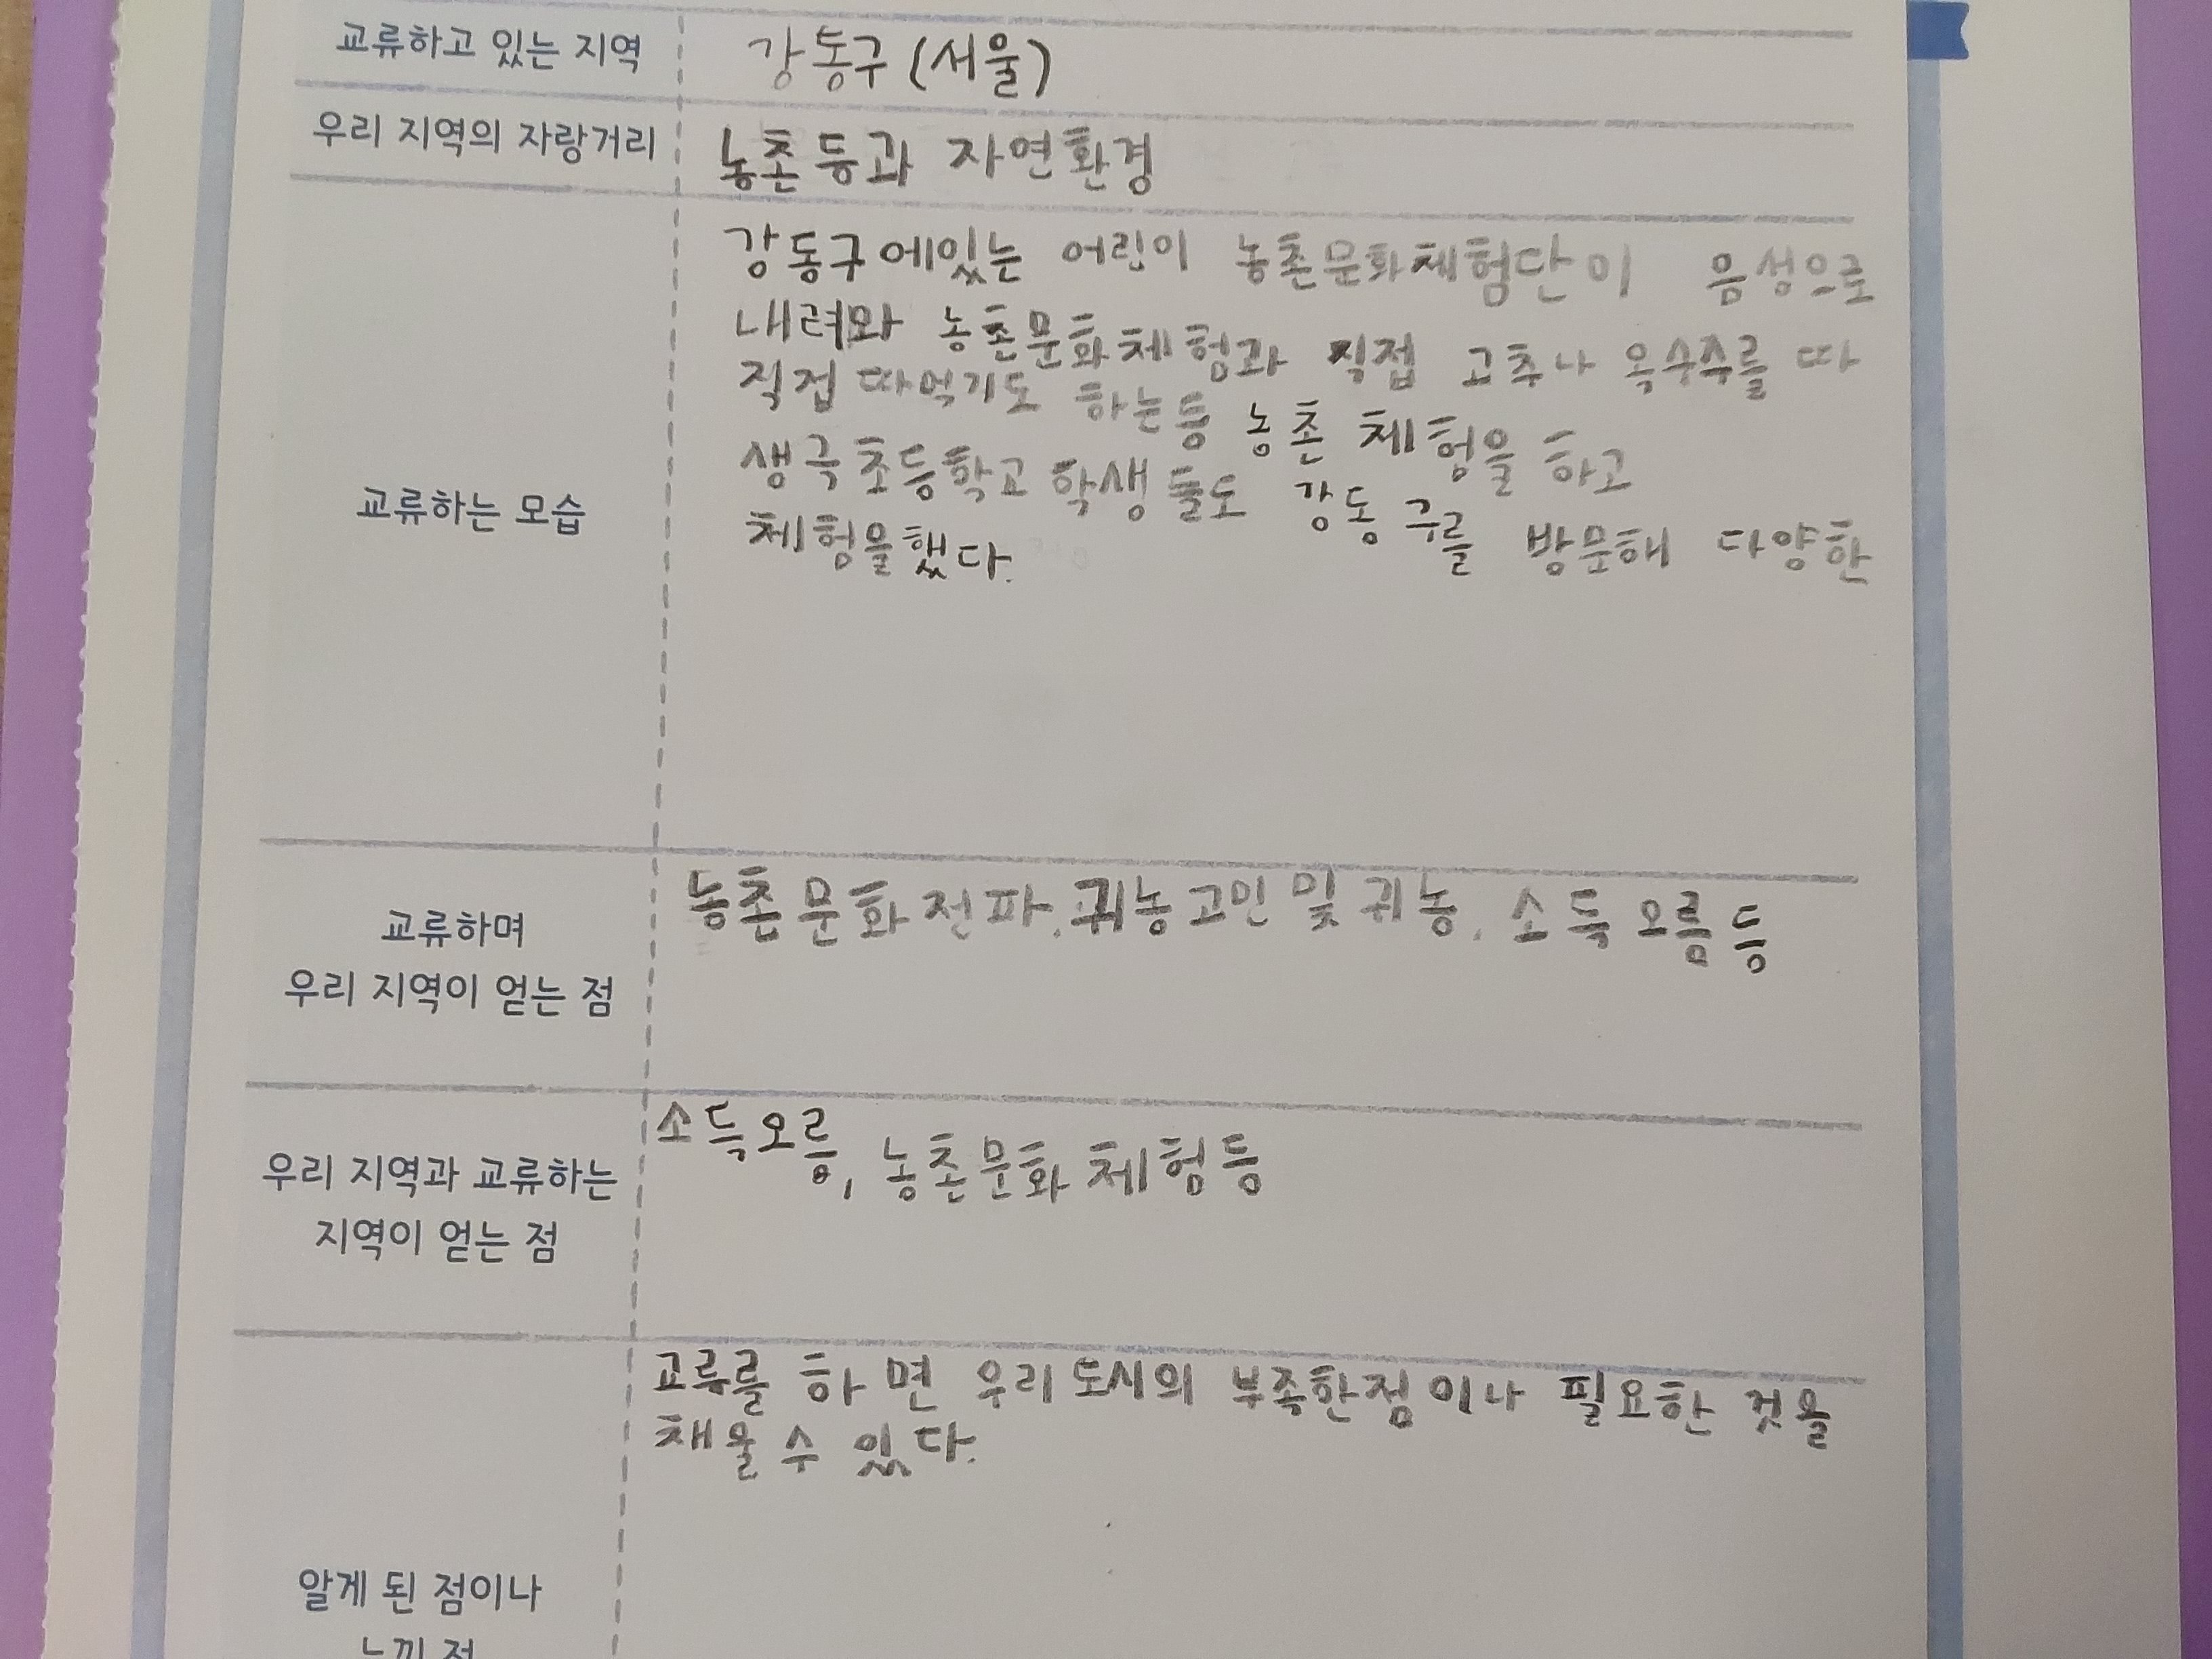 교류하고 있는 지역
강동구 (서울)
우리 지역의 자랑거리
농촌등과 자연환경
교류하는 모습
강동구에있는 어린이 농촌문화체험단이 음성으로
내려와 농촌문화체험과 직접 고추나 옥수수를 따
직접 따먹기도 하는등 농촌 체험을 하고
생극초등학교 학생들도 강동구를 방문해 다양한
체험을했다.
교류하며
우리 지역이 얻는 점
농촌문화전파. 귀농고민 및 귀농. 소득오름등
우리 지역과 교류하는
지역이 얻는 점
소득오름, 농촌문화체험등
알게 된 점이나
느낀 점
교류를 하면 우리도시의 부족한점이나 필요한 것을
채울수 있다.